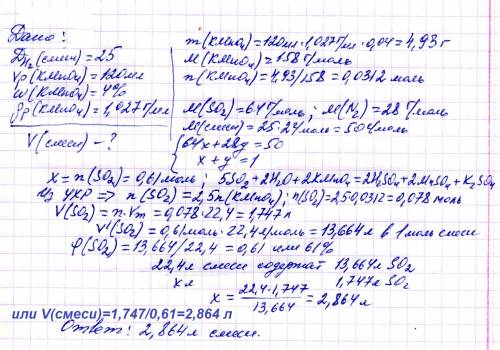 Дано:
D H2 (смеси) = 25
Vр(KMnO4) = 120мл
ω(KMnO4) = 4%
ρр(KMnO4) = 1,027г/мл
V(смеси) - ?
m(KMnO4) = 120мл · 1,027г/мл · 0,04 = 4,93 г
M(KMnO4) = 158 г/моль
n(KMnO4) = 4,93/158 = 0,0312 моль
M(SO2) = 64 г/моль ; M(N2) = 28 г/моль
M(смеси) = 25·2г/моль = 50 г/моль
64x + 28y = 50
x + y = 1
x = n(SO2) = 0,61 моль ; 5SO2 + 2H2O + 2KMnO4 = 2H2SO4 + 2MnSO4 + K2SO4
Из УХР => n(SO2) = 2,5n(KMnO4); n(SO2) = 2,5·0,0312 = 0,078 моль
V(SO2) = n·Vm = 0,078·22,4 = 1,747 л
V'(SO2) = 0,61моль · 22,4л/моль = 13,664 л в 1 моль смеси
φ(SO2) = 13,664/22,4 = 0,61 или 61%
22,4л смеси содержат 13,664л SO2
x л 1,747л SO2
x = 22,4·1,747 / 13,664 = 2,864 л
или V(смеси)=1,747/0,61=2,864 л
Ответ: 2,864л смеси.